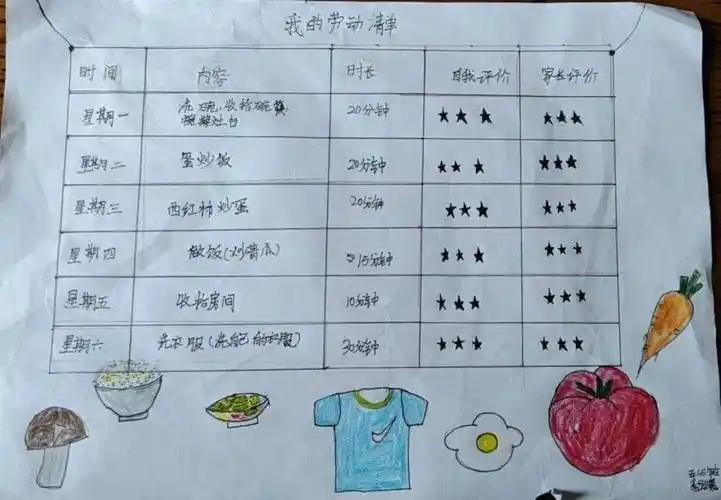 我的劳动清单
时间 内容 时长 自我评价 家长评价
星期一 洗碗,收拾碗筷 20分钟 ★★★ ★★★
灶台
星期二 蛋炒饭 20分钟 ★★★ ★★★
星期三 西红柿炒蛋 20分钟 ★★★ ★★★
星期四 做饭(炒黄瓜) 15分钟 ★★★ ★★★
星期五 收拾房间 10分钟 ★★★ ★★★
星期六 洗衣服(洗自己的衣服) 30分钟 ★★★ ★★★